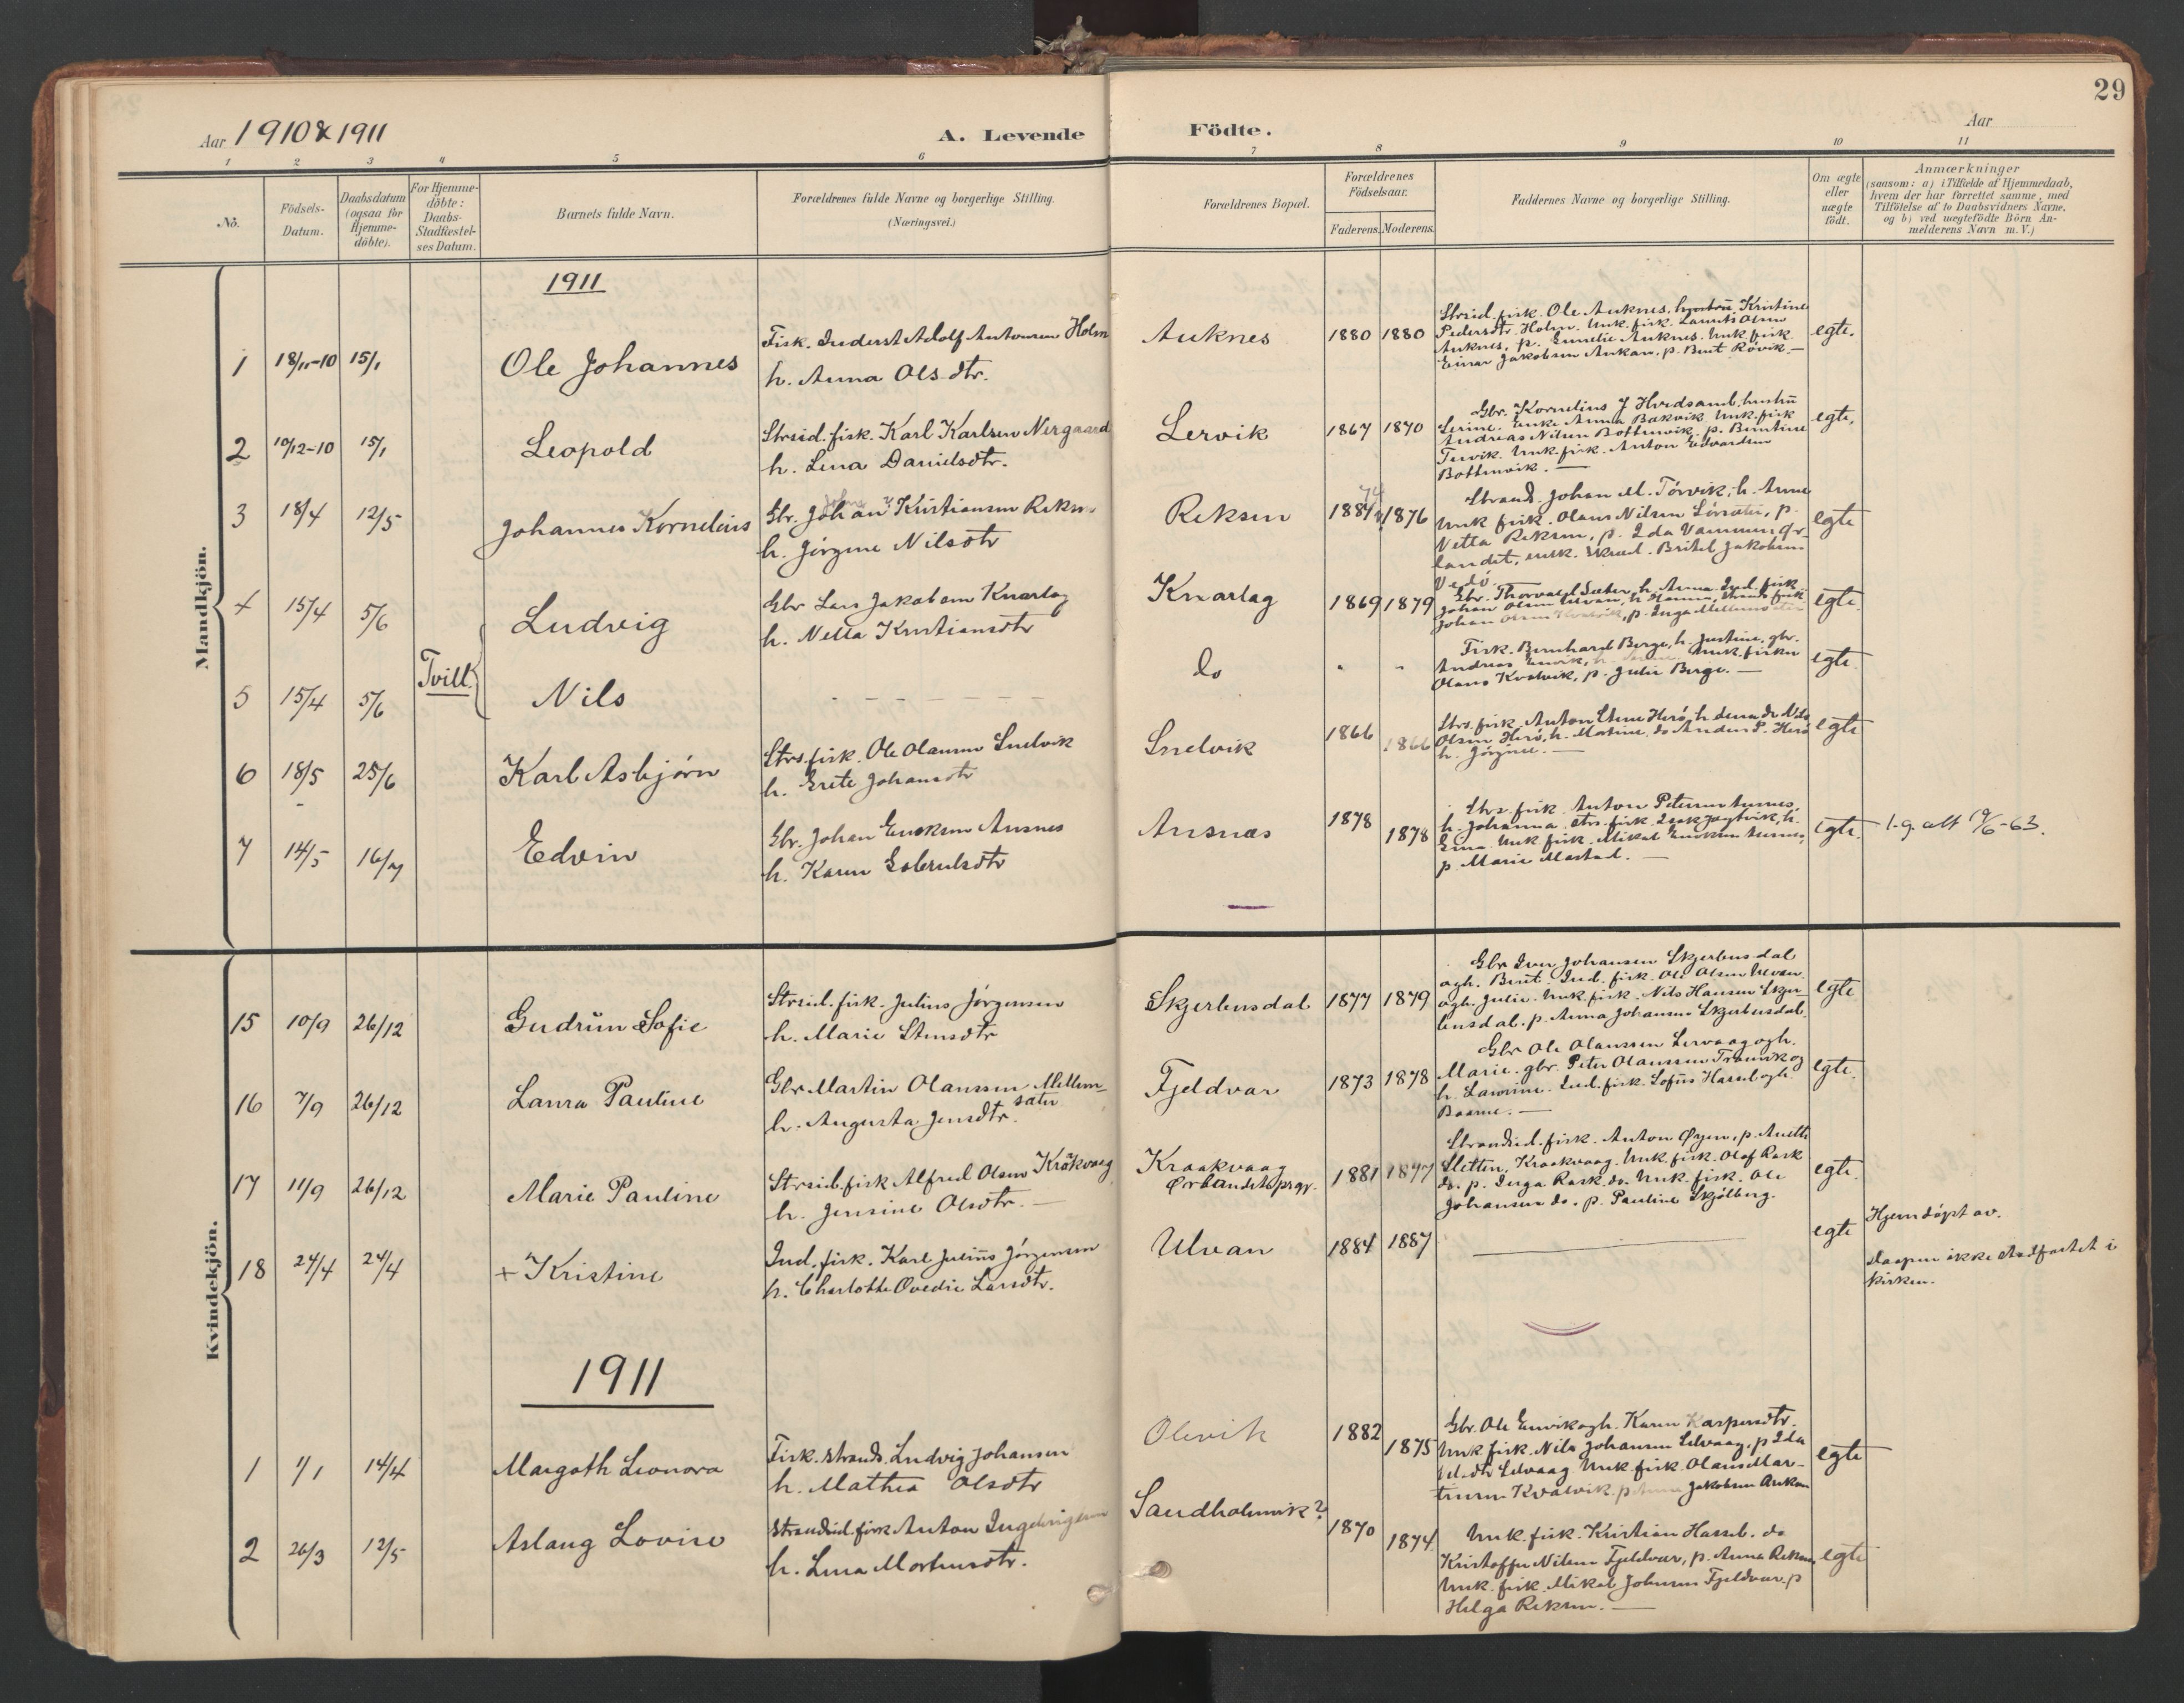 29
Aar 1910 & 1911
A. Levende Födte.
Aar
1 2 3 4 5 6 7 8 9 10 11
No.
Födsels-Datum.
Daabsdatum (ogsaa for Hjemme-döbte).
For Hjemme-döbte: Daabs-Stadfæstel-ses Datum.
Barnets fulde Navn.
Forældrenes fulde Navne og borgerlige Stilling.
(Næringsvei.)
Forældrenes Bopæl.
Forældrenes Födselsaar.
Faderens. Moderens.
Faddernes Navne og borgerlige Stilling.
Om ægte eller uægte födt.
Anmærkninger
(saasom: a) i Tilfælde af Hjemmedaab,
hvem der har forrettet samme, med
Tilföielse af to Daabsvidners Navne,
og b) ved uægtefödte Börn An-
melderens Navn m. V.)
Mandkjön.
1911
1 18/11-10 15/1 Ole Johannes
Fisk. Inderst Adolf Antonsen Holm
h. Anna Olsdtr.
Auknes 1880 1880
Strsid. fisk. Ole Auknes, hustru Kristine
Pedersdtr. Holm. Unk. fisk. Laurits Olsen
Auknes, p. Auknes. Unk. fisk.
Einar Jakobsen Aukan, p. Berit Røvik. —
egte.
2 10/12-10 15/1 Leopold
Strsid. fisk. Karl Karlsen Nergaard
h. Lina Danielsdtr.
Lervik 1867 1870
Gbr. Kornelius J Hvidsand, hustru
Serine. Enke Anna Bakvik. Unk. fisk
Andreas Nilsen Bottenvik, p. Berntine
Tervik. Unk. fisk. Anton Edvardsen
Bottenvik. —
egte,
3 18/4 12/5 Johannes Kornelius
Gbr. Johan Kristiansen Reksen
h. Jörgine Nilsdtr
Reksen 1876
Strand. Johan M. Törvik, h. Anne
Unk fisk. Olaus Nilsen, p.
Netta Reksen, p. Ida
landet, unk. Bertel Jakobsen
Vedö.
egte
4 15/4 5/6 Ludvig
Gbr Lars Jakobsen Knarlag
h. Netta Kristiansdtr
Knarlag 1869 1879
Gbr. Thorvald Sæter, h. Anna. Ind. fisk
Johan Olsen Ulvan, h Hanna, Unk fisk
Johan Olsen, p. Inga
egte.
Tvill.
5 15/4 5/6 Nils
do " "
Fisk. Bernhard Berge, h. Justine, gbr.
Andreas, Unk. fisker
Olaus Kvalvik, p. Julie Berge. —
egte.
6 18/5 25/6 Karl Asbjörn
Strs. fisk. Ole Olausen Snelvik
h. Grete Johansdtr
Snelvik 1866 1866
Strs. fisk. Anton Stene Herö, h. do Nils
Olsen Herö, h. Matine, do Anders P. Herö
h. Jörgine. —
egte
7 14/5 16/7 Edvin
Gbr. Johan Enoksen Ansnes
h. Karen Gabrielsdtr
Ansnæs 1878 1878
Strs. fisk. Anton Petersen Ansnes,
h. Johanna, strs. fisk. Isak Jagtvik, h.
Unk fisk. Mikal Enoksen Ansnes,
p. Marie Mastad. —
egte.
l. g. att 19/6-63.
Kvindekjön.
15 10/9 26/12 Gudrun Sofie
Strsid. fisk. Julius Jörgensen
h. Marie Stensdtr
Skjerbusdal 1877 1879
Gbr Iver Johansen Skjerbusdal
ogh. Berit. Ind. fisk. Ole Olsen Ulvan
ogh. Julie. Unk. fisk. Nils Hansen Skjer-
busdal. p. Anna Johansen Skjerbusdal.
egte
16 7/9 26/12 Laura Pauline
Gbr Martin Olaussen Mellem-
sæter
h. Augusta Jensdtr.
Fjeldvær 1873 1878
Gbr Ole Olaussen Lervaag ogh.
Marie. gbr. Peter Olaussen og
h. Lavrine. Ind. fisk. Sofus Hassel ogh
—
egte.
17 11/9 26/12 Marie Pauline
Strsid. fisk Alfred Olsen Kråkvaag
h. Jensine Olsdtr. —
Kraakvaag
Ørlandets prgj. 1881 1877
Strandsid. fisk. Anton Øyen, p. Anetta
Sletten, Kraakvaag. Unk. fisk. Olaf Rask
do. p. Inga Rask do. Unk. fisk. Ole
Johansen do. p. Pauline Skjölberg.
egte.
18 24/4 24/4 + Kristine
Ind. fisk. Karl Julius Jörgensen
h. Charlotte Ovedie Larsdtr.
Ulvan 1884 1887
egte
Hjemdöpt av.
Daapen ikke stadfæstet i
kirken.
1911
1 1/1 14/4 Margoth Leonora
Fisk. strands. Ludvig Johansen
h. Mathea Olsdtr
Olevik 1882 1875
Gbr. Ole ogh. Karen Kaspersdtr.
Unk fisk. Nils Johansen Selvaag, p Ida
Selvaag. Unk. fisk. Olaus Mar-
tinsen Kvalvik. p Jakobsen Aukan
egte
2 26/3 12/5 Aslaug Lovise
Strandsid. fisk Anton Ingebrigtsen
h. Lina Mortensdtr.
Sandholmvik? 1870 1874
Unk. fisk. Kristian Hassel. do
Kristoffer Nilsen Fjeldvær, p. Anna Reksen,
Unk. fisk. Mikal Johnsen Fjeldvær p
Helga Reksen. —
egte